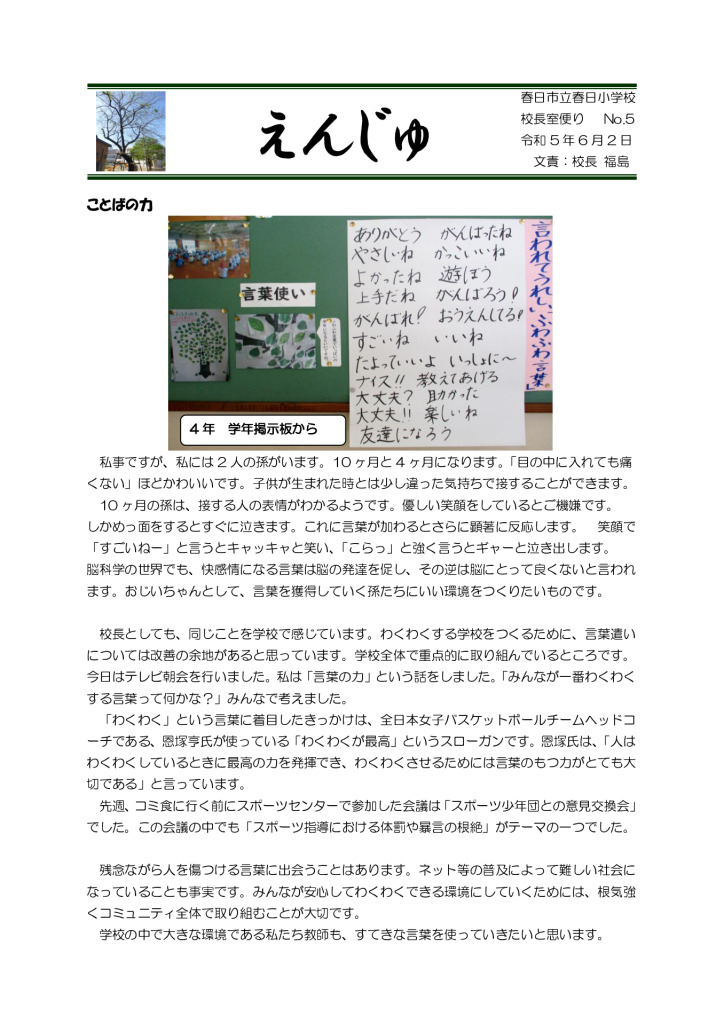 えんじゅ
春日市立春日小学校
校長室便り　No.5
令和５年６月２日
文責：校長 福島
ことばの力
言葉使い
４年　学年掲示板から
ありがとう　がんばったね
やさしいね　かっこいいね
よかったね　遊ぼう
上手だね　がんばろう！
がんばれ！　おうえんしてる！
すごいね　いいね
たよっていいよ　いっしょに～
ナイス！！　教えてあげる
大丈夫？　助かった
大丈夫！！　楽しいね
友達になろう
言われてうれしい「ふわふわ言葉」
　私事ですが、私には２人の孫がいます。10ヶ月と４ヶ月になります。「目の中に入れても痛
くない」ほどかわいいです。子供が生まれた時とは少し違った気持ちで接することができます。
　10ヶ月の孫は、接する人の表情がわかるようです。優しい笑顔をしているとご機嫌です。
しかめっ面をするとすぐに泣きます。これに言葉が加わるとさらに顕著に反応します。　笑顔で
「すごいねー」と言うとキャッキャと笑い、「こらっ」と強く言うとギャーと泣き出します。
脳科学の世界でも、快感情になる言葉は脳の発達を促し、その逆は脳にとって良くないと言われ
ます。おじいちゃんとして、言葉を獲得していく孫たちにいい環境をつくりたいものです。
　校長としても、同じことを学校で感じています。わくわくする学校をつくるために、言葉遣い
については改善の余地があると思っています。学校全体で重点的に取り組んでいるところです。
今日はテレビ朝会を行いました。私は「言葉の力」という話をしました。「みんなが一番わくわく
する言葉って何かな？」みんなで考えました。
　「わくわく」という言葉に着目したきっかけは、全日本女子バスケットボールチームヘッドコ
ーチである、恩塚亨氏が使っている「わくわくが最高」というスローガンです。恩塚氏は、「人は
わくわくしているときに最高の力を発揮でき、わくわくさせるためには言葉のもつ力がとても大
切である」と言っています。
　先週、コミ食に行く前にスポーツセンターで参加した会議は「スポーツ少年団との意見交換会」
でした。この会議の中でも「スポーツ指導における体罰や暴言の根絶」がテーマの一つでした。
　残念ながら人を傷つける言葉に出会うことはあります。ネット等の普及によって難しい社会に
なっていることも事実です。みんなが安心してわくわくできる環境にしていくためには、根気強
くコミュニティ全体で取り組むことが大切です。
　学校の中で大きな環境である私たち教師も、すてきな言葉を使っていきたいと思います。